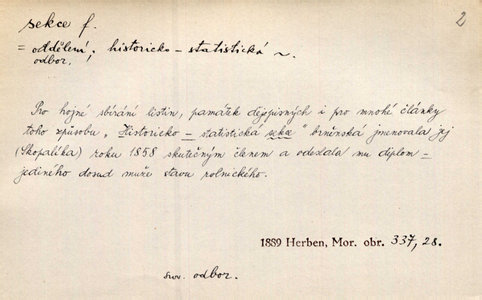 sekce f.
2
= oddělení; historicko-statistická ~.
odbor.
Pro hojné sbírání listin, památek dějepisných i pro mnohé články
toho způsobu „Historicko = statistická sekce" brněnská jmenovala jej
(Skopalíka) roku 1858 skutečným členem a odeslala mu diplom =
jediného dosud muže stavu rolnického.
1889 Herben, Mor. obr. 337, 28.
srv. odbor.